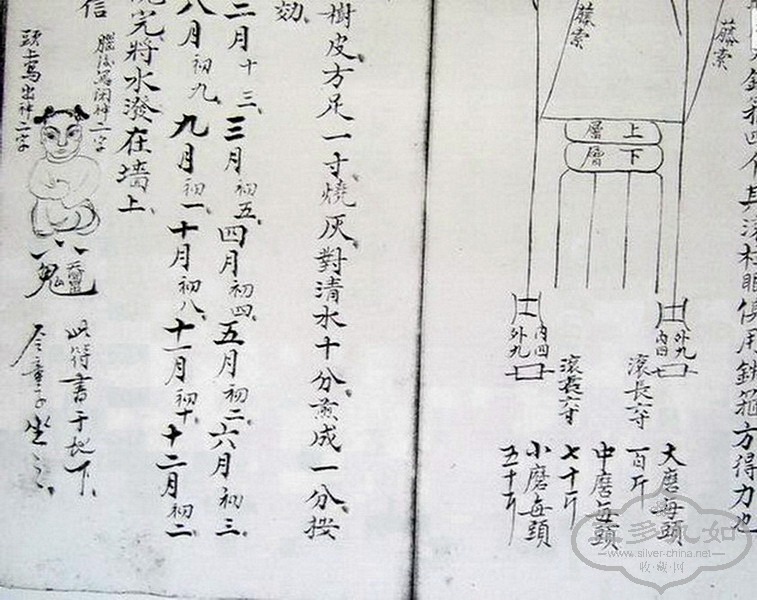 鐵箍四个其滚柱眼俱用鉄箍方得力也
藤索
藤索
上層
下層
外九
内四
内四
外九
滚長六寸
滚長六寸
大磨每頭
一百斤
中磨每頭
七十斤
小磨每頭
五十斤
樹皮方足一寸燒灰對清水十分煎成一分按
効
二月十三、三月初五、四月初四、五月初二、六月初三
八月初九、九月初一、十月初八、十一月初十、十二月初二
完將水潑在墻上、
信
腦後寫閉神二字
頭上寫出神二字
此符書于地下、
令童子坐之、
www.silver-china.net
收·藏·网